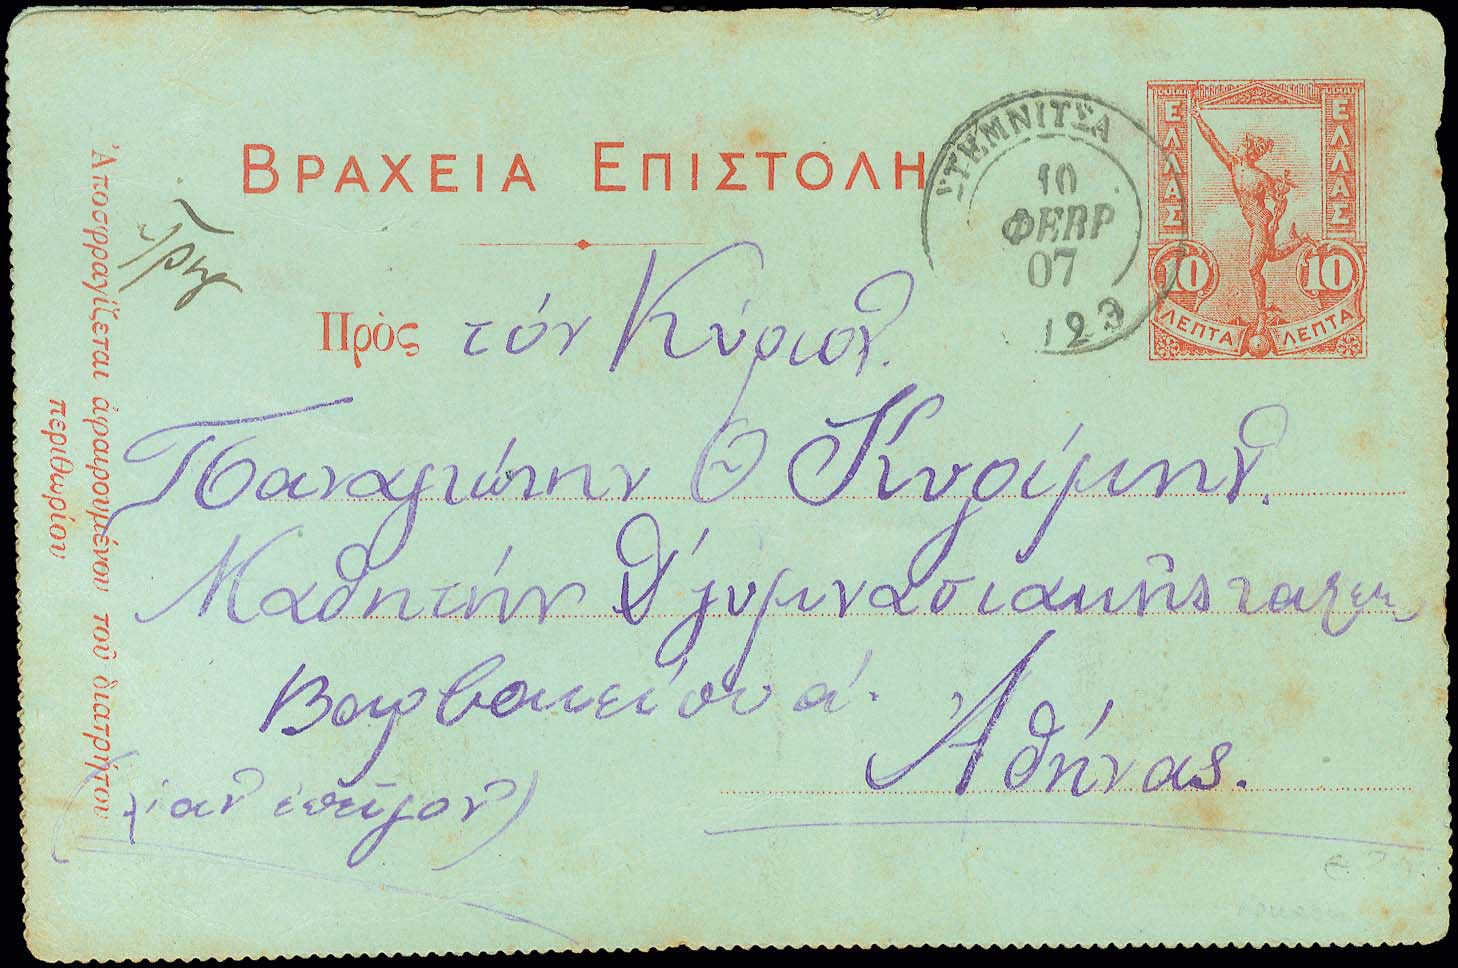 ΒΡΑΧΕΙΑ ΕΠΙΣΤΟΛΗ
ΣΤΕΜΝΙΤΣΑ
10
ΦΕΒΡ
07
123
ΕΛΛΑΣ
ΕΛΛΑΣ
10
10
ΛΕΠΤΑ
ΛΕΠΤΑ
Ἀποσφραγίζεται ἀφαιρουμένου τοῦ διατρήτου
περιθωρίου
Πρὸς τόν Κύριον.
Παναγιώτην Θ Κυρίμην.
Μαθητήν Θ' γυμνασιακῆς ταξεως
Βαρβακείου α'.
Ἀθήνας.
(λίαν ἐπεῖγον)